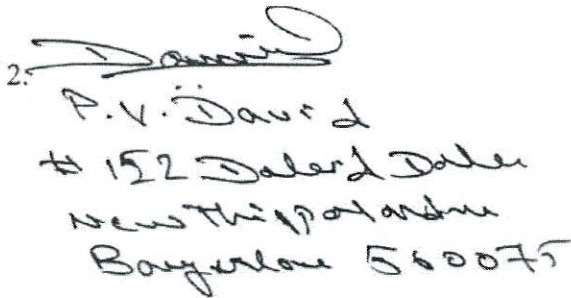 2.
P.V. David
# 152
New Thippasandra
Bangalore 560075